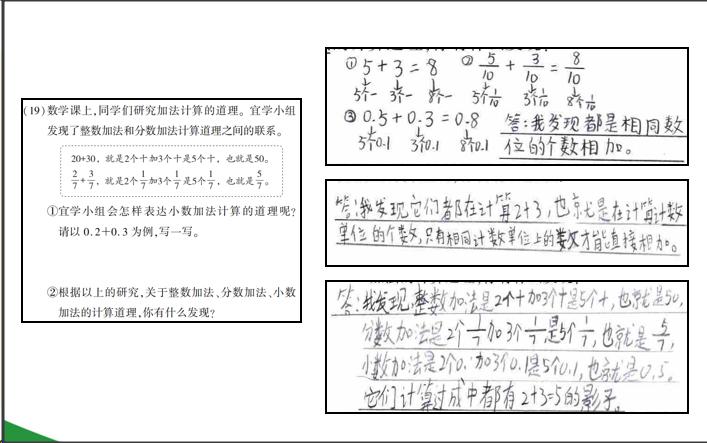 (19)数学课上,同学们研究加法计算的道理。宜学小组
发现了整数加法和分数加法计算道理之间的联系。
20+30,就是2个十加3个十是5个十,也就是50。
2/7+3/7,就是2个1/7加3个1/7是5个1/7,也就是5/7。
①宜学小组会怎样表达小数加法计算的道理呢?
请以 0.2+0.3 为例,写一写。
②根据以上的研究,关于整数加法、分数加法、小数
加法的计算道理,你有什么发现?
① 5+3=8 ② 5/10 + 3/10 = 8/10
5个一 3个一 8个一 5个1/10 3个1/10 8个1/10
③ 0.5+0.3=0.8 答:我发现都是相同数
5个0.1 3个0.1 8个0.1 位的个数相加。
答:我发现它们都在计算2+3,也就是在计算计数
单位的个数,只有相同计数单位上的数才能直接相加。
答:我发现,整数加法是2个十加3个十是5个十,也就是50,
分数加法是2个1/7加3个1/7是5个1/7,也就是5/7,
小数加法是2个0.1加3个0.1是5个0.1,也就是0.5。
它们计算过成中都有2+3=5的影子。